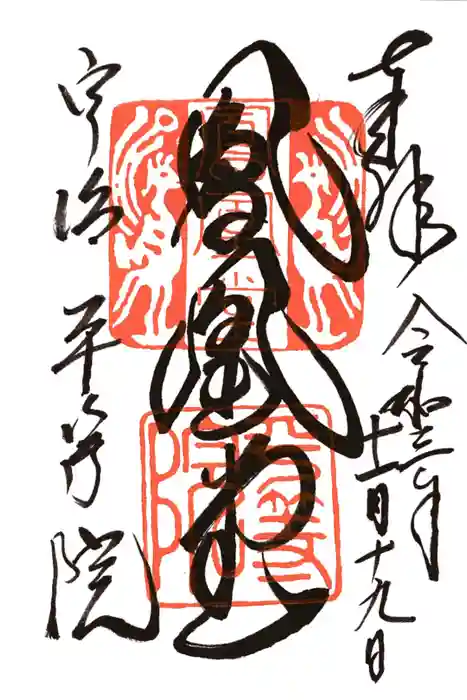 奉拝
令和三年
十一月十九日
鳳凰堂
宇治 平等院